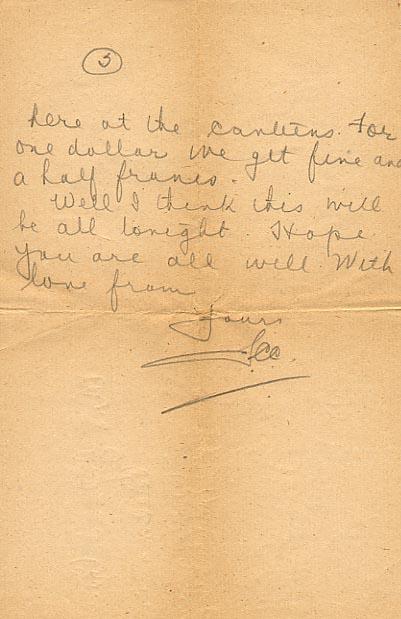 5
here at the canteens. For
one dollar we get five and
a half francs.
Well I think this will
be all tonight. Hope
you are all well. With
love from
Yours